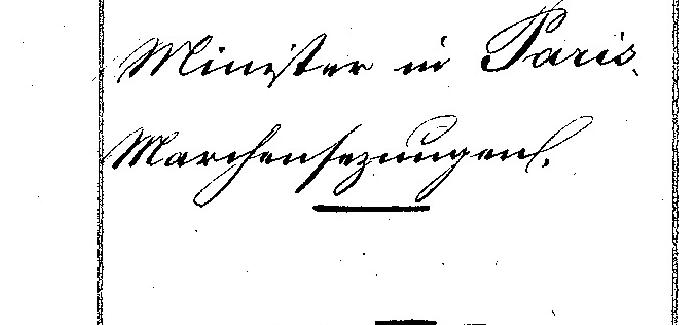 Minister in Paris.
Marchensezungen.